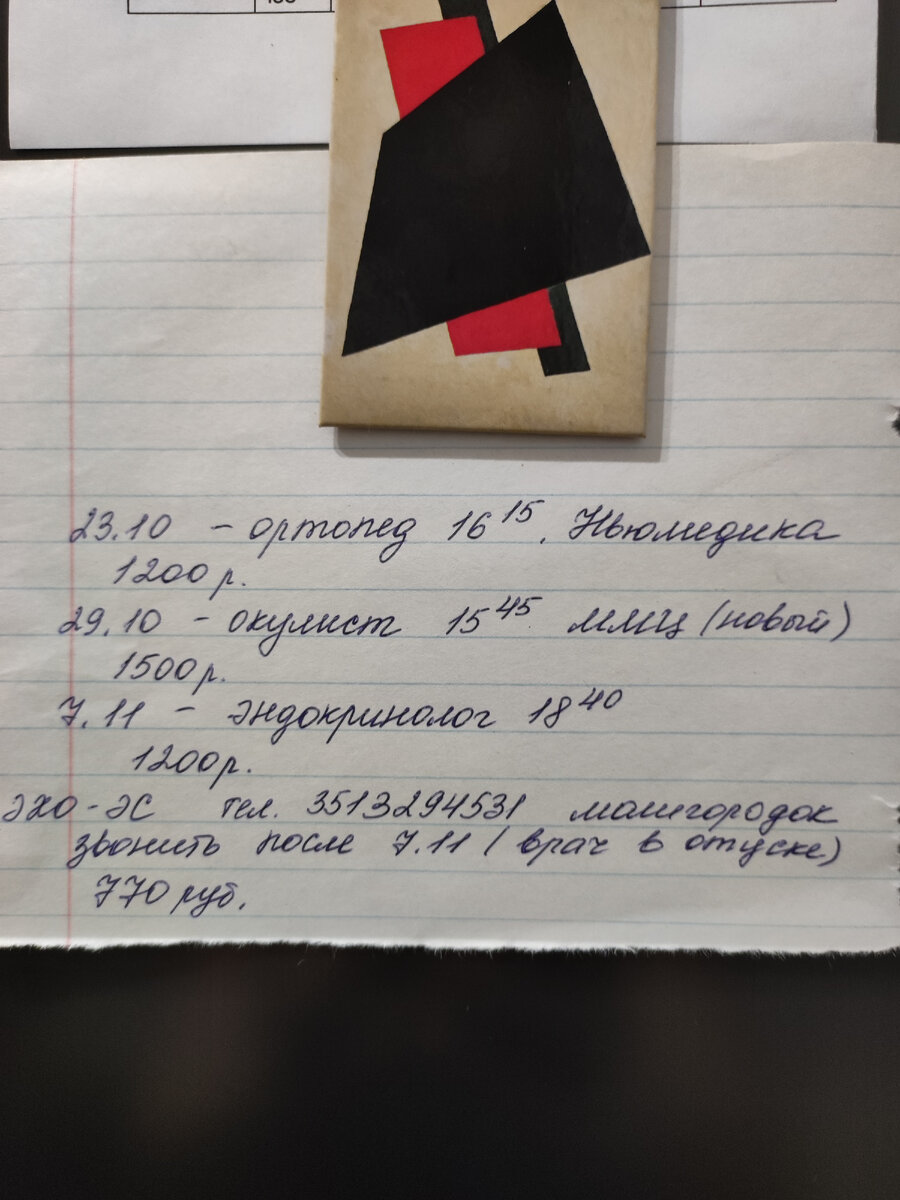 23.10 - ортопед 16 15, Ньюмедика
1200 р.
29.10 - окулист 15 45 ММЦ (новый)
1500 р.
7.11 - эндокринолог 18 40
1200 р.
ЭХО-ЭС тел. 3513294531 машгородок
звонить после 7.11 (врач в отпуске)
770 руб.